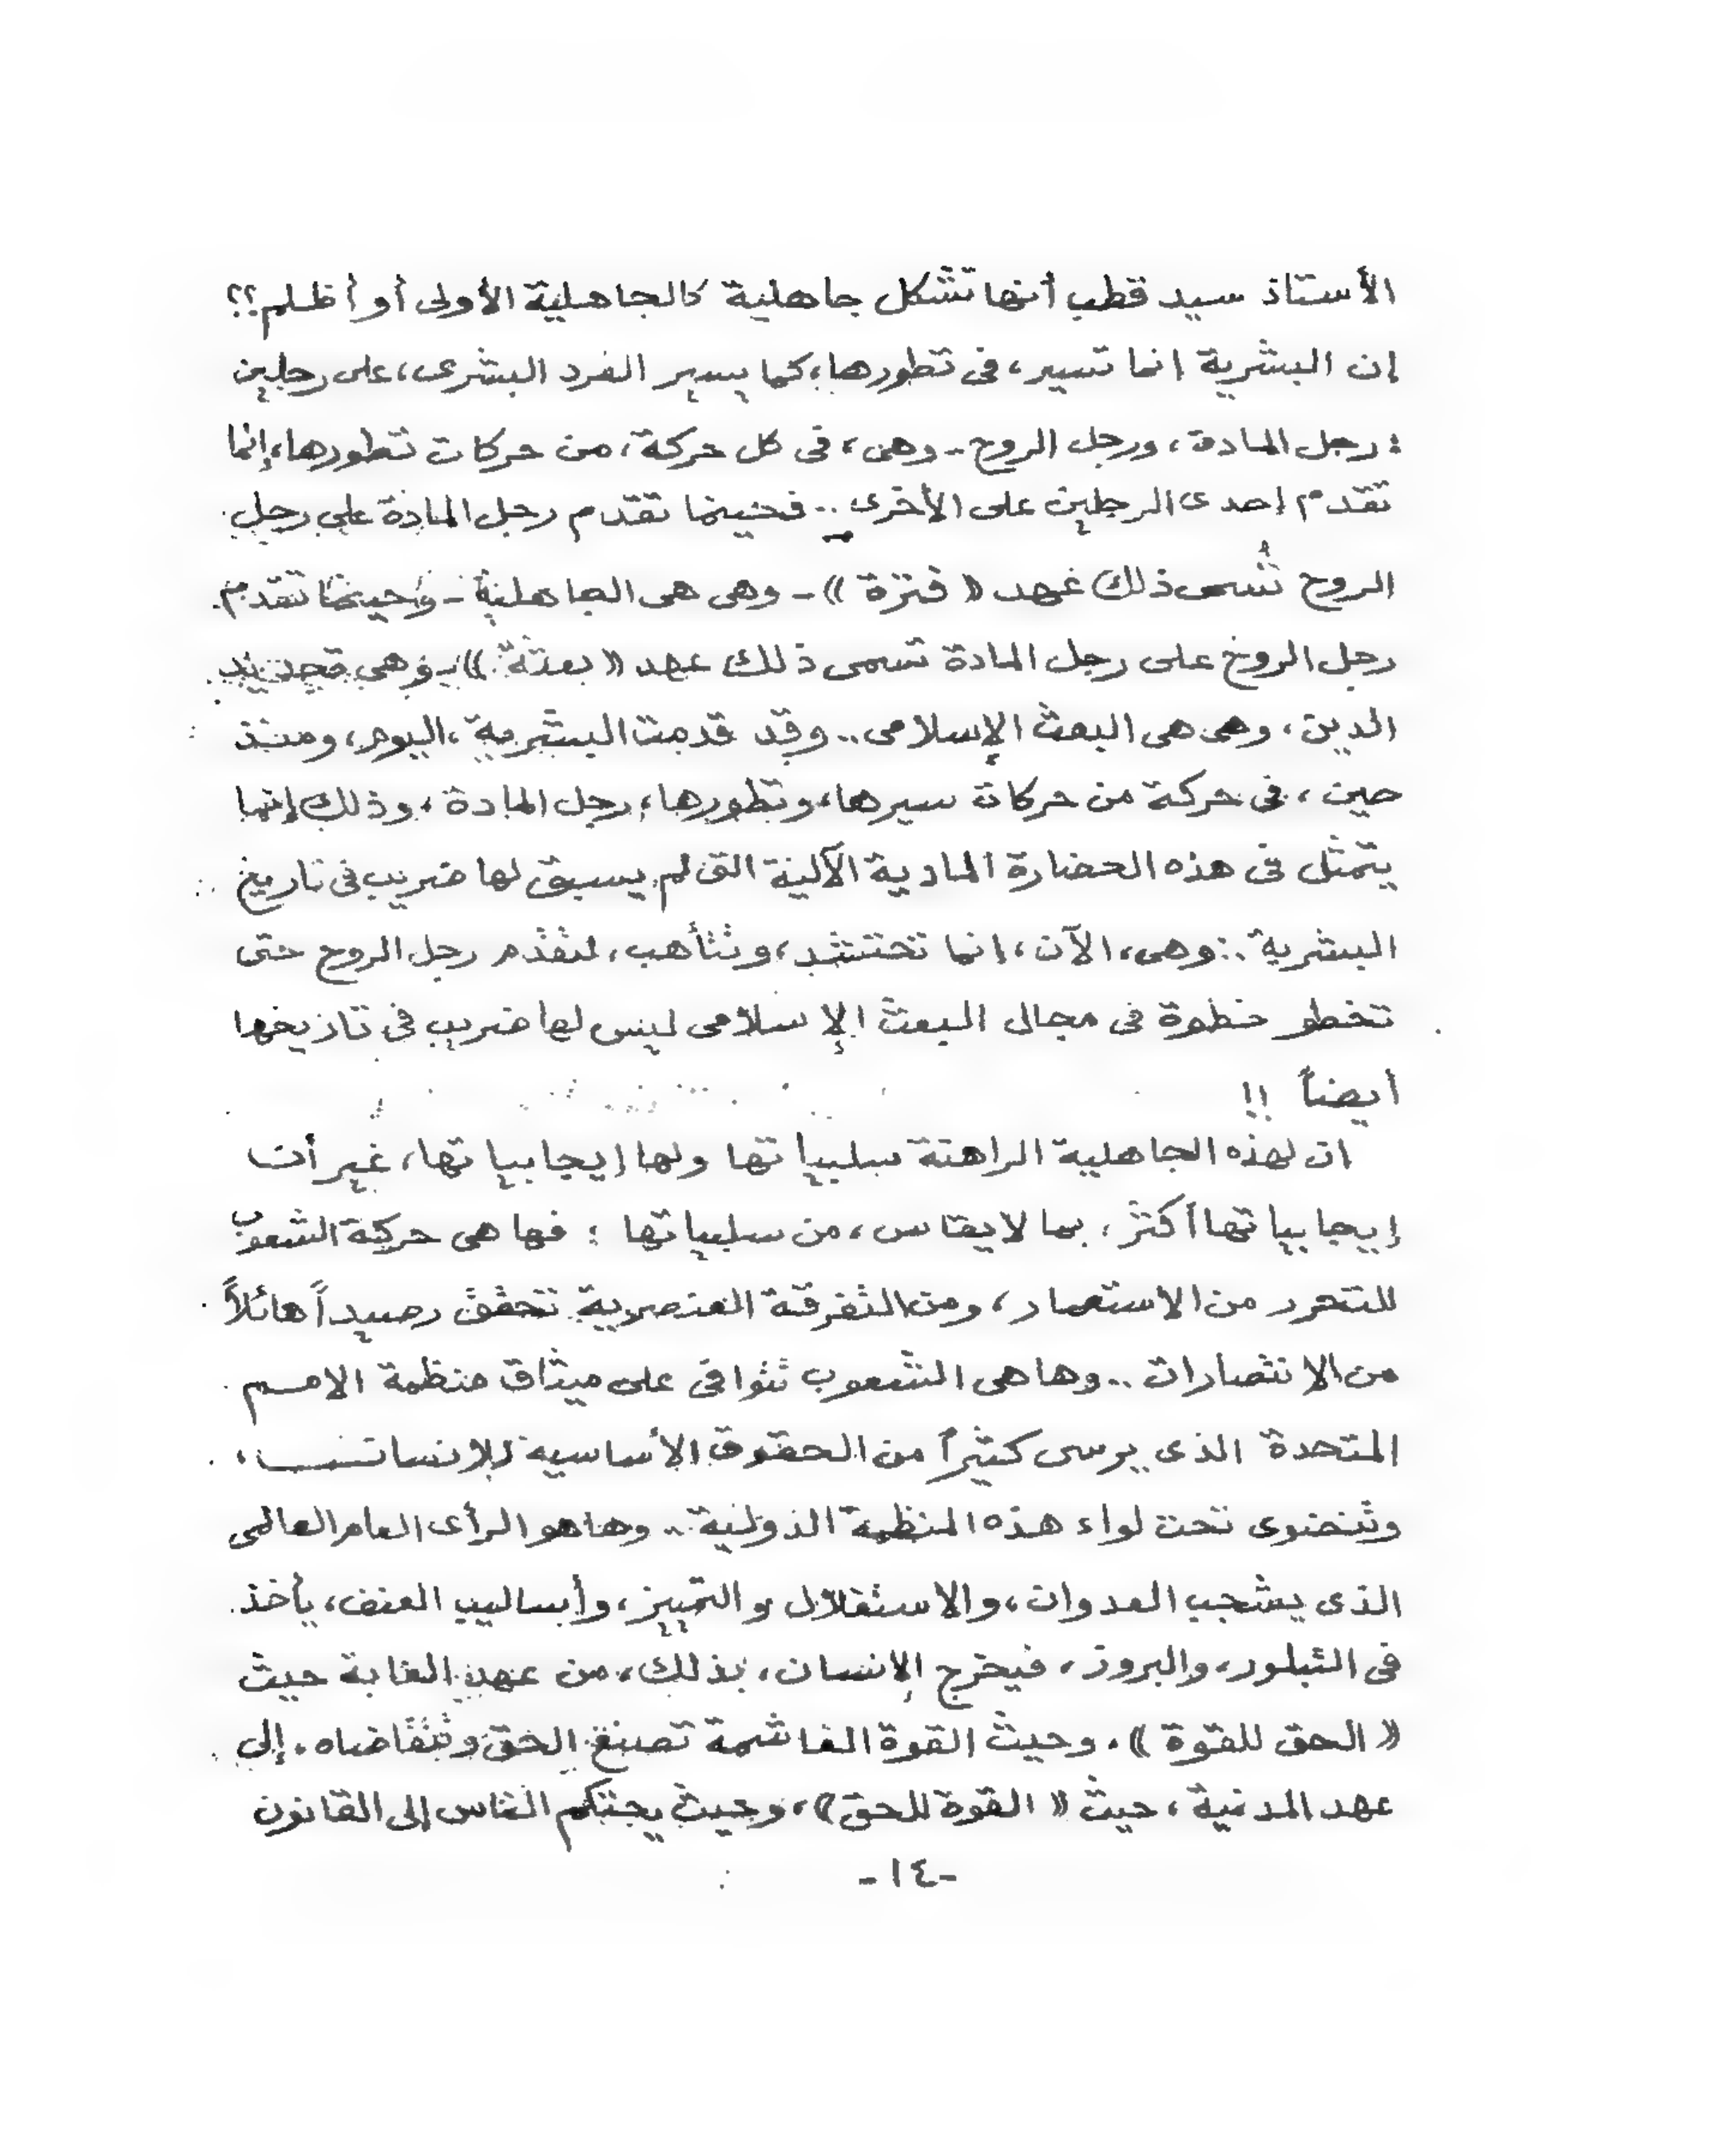 الأستاذ سيد قطب أنها تشكل جاهلية كالجاهلية الأولى أو أظلم؟؟
إن البشرية إنما تسير، في تطورها، كما يسير الفرد البشرى، على رجلين
: رجل المادة، ورجل الروح.. وهى، في كل حركة، من حركات تطورها، إنما
تقدم إحدى الرجلين على الأخرى.. فحينما تقدم رجل المادة على رجل
الروح تُسمى ذلك عهد «فترة» - وهى هى الجاهلية - وحينما تقدم
رجل الروح على رجل المادة تسمى ذلك عهد «بعثة» - وهي تجديد
الدين، وهى هى البعث الإسلامى.. وقد قدمت البشرية، اليوم، ومنذ
حين، في حركة من حركات سيرها، وتطورها، رجل المادة، وذلك إنما
يتمثل في هذه الحضارة المادية الآلية التي لم يسبق لها ضريب في تاريخ
البشرية.. وهى، الآن، إنما تحتشد، وتتأهب، لتقدم رجل الروح حتى
تخطو خطوة في مجال البعث الإسلامى ليس لها ضريب في تاريخها
أيضاً !!
ان لهذه الجاهلية الراهنة سلبياتها ولها إيجابياتها، غير أن
إيجابياتها أكثر، بما لا يقاس، من سلبياتها: فها هى حركة الشعوب
للتحرر من الاستعمار، ومن التفرقة العنصرية تحقق رصيداً هائلاً
من الانتصارات.. وها هى الشعوب تتوافى على ميثاق منظمة الامم
المتحدة الذى يرسى كثيراً من الحقوق الأساسية للإنسان،
وتنضوى تحت لواء هذه المنظمة الدولية.. وها هو الرأى العام العالمى
الذى يشجب العدوان، والاستغلال والتمييز، وأساليب العنف، يأخذ
في التبلور، والبروز، فيخرج الإنسان، بذلك، من عهد الغابة حيث
«الحق للقوة». وحيث القوة الغاشمة تصنع الحق وتتقاضاه. إلى
عهد المدنية، حيث «القوة للحق»، وحيث يحتكم الناس إلى القانون
-١٤-